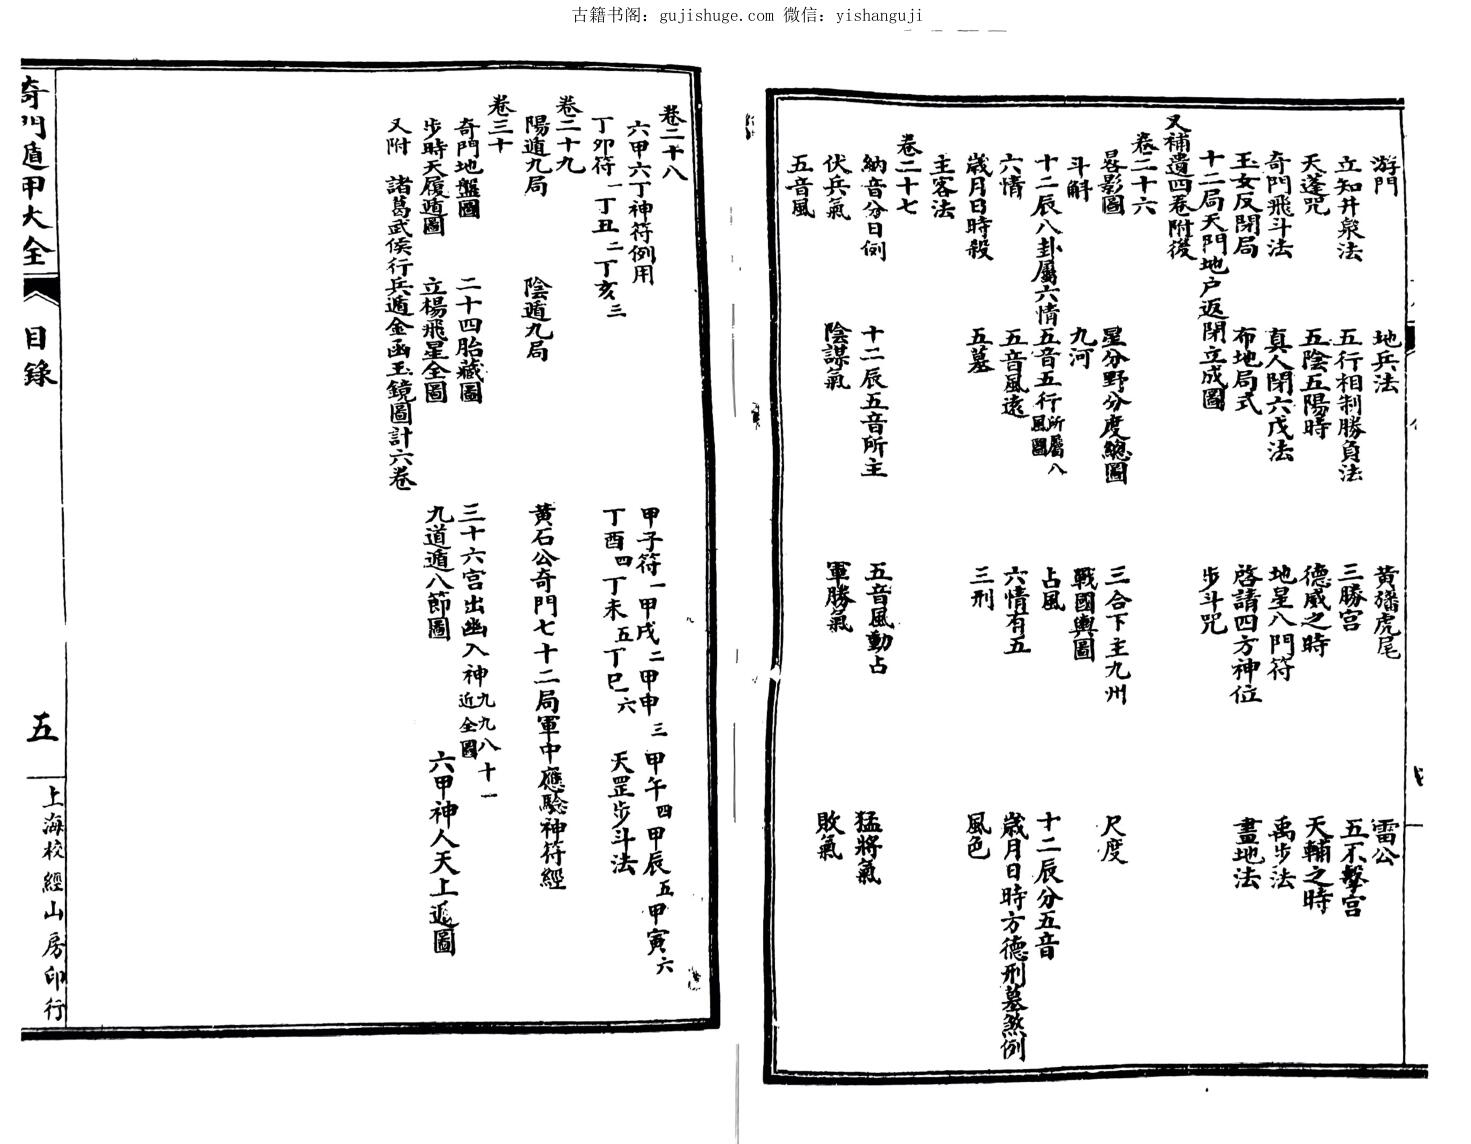 古籍书阁：gujishuge.com 微信：yishanguji
游門 地兵法 黃旛虎尾 雷公
立知井泉法 五行相制勝負法 三勝宮 五不擊宮
天蓬咒 五陰五陽時 德威之時 天輔之時
奇門飛斗法 真人閉六戊法 地星八門符 禹步法
玉女反閉局 布地局式 啓請四方神位 畫地法
十二局天門地户返閉立成圖 步斗咒
又補遺四卷附後
卷二十六
晷影圖 星分野分度總圖 三合下主九州 尺度
斗斛 九河 戰國輿圖
十二辰八卦屬六情 五音五行所屬八風圖 占風 十二辰分五音
六情 五音風遠 六情有五 歲月日時方德刑墓煞例
歲月日時殺 五墓 三刑 風色
主客法
卷二十七
納音分日例 十二辰五音所主 五音風動占 猛將氣
伏兵氣 陰謀氣 軍勝氣 敗氣
五音風
卷二十八
六甲六丁神符例用 甲子符一甲戌二甲申三甲午四甲辰五甲寅六
丁卯符一丁丑二丁亥三 丁酉四丁未五丁巳六 天罡步斗法
卷二十九
陽遁九局 陰遁九局 黃石公奇門七十二局軍中應驗神符經
卷三十
奇門地盤圖 二十四胎藏圖 三十六宮出幽入神九九八十一近全圖
步時天履遁圖 立楊飛星全圖 九道遁八節圖 六甲神人天上遁圖
又附 諸葛武侯行兵遁金函玉鏡圖計六卷
奇門遁甲大全 目錄 五 上海校經山房印行